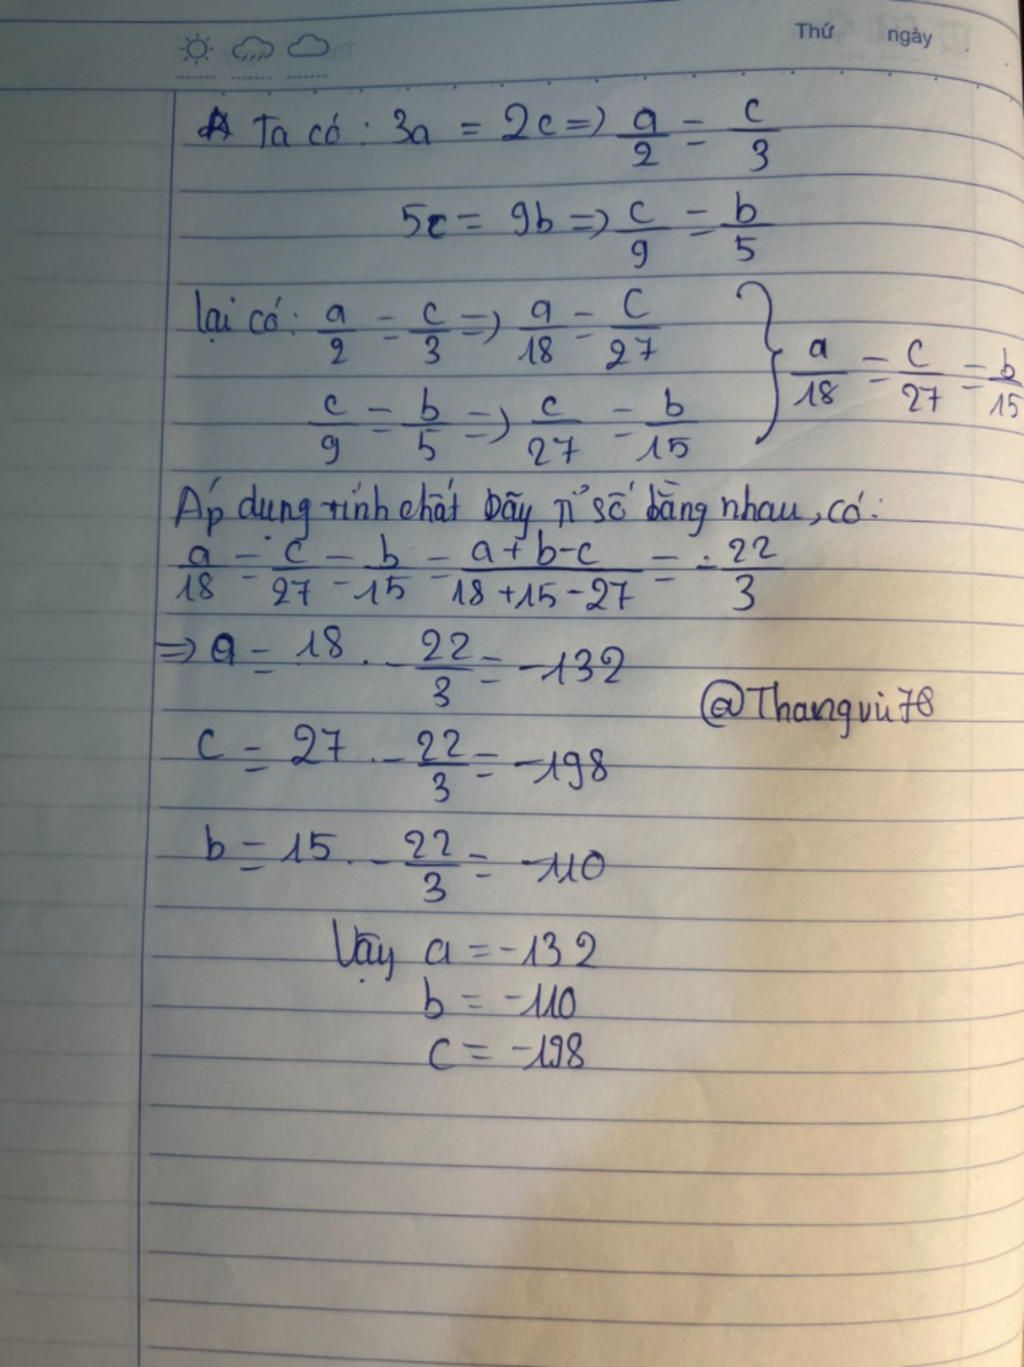 Thứ ngày
Ta có: 3a = 2c => a/2 = c/3
5c = 9b => c/9 = b/5
lại có: a/2 = c/3 => a/18 = c/27
c/9 = b/5 => c/27 = b/15
} a/18 = c/27 = b/15
Áp dụng tính chất Dãy tỉ số bằng nhau, có:
a/18 = c/27 = b/15 = a+b-c/18+15-27 = -22/3
=> a = 18 . -22/3 = -132
@Thangvũ78
c = 27 . -22/3 = -198
b = 15 . -22/3 = -110
Vậy a = -132
b = -110
c = -198